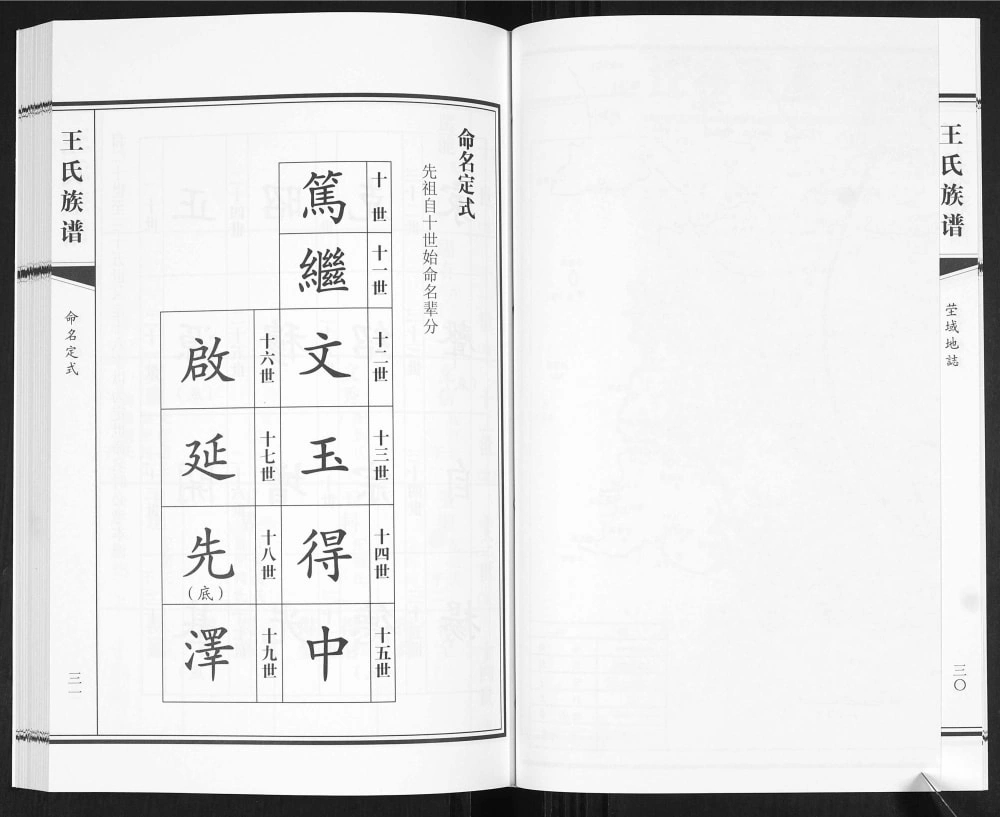 王氏族谱
茔域地誌
三〇
命名定式
先祖自十世始命名辈分
十世
篤
十一世
繼
十二世
文
十三世
玉
十四世
得
十五世
中
十六世
啟
十七世
延
十八世
先
（底）
十九世
澤
王氏族谱
命名定式
三一